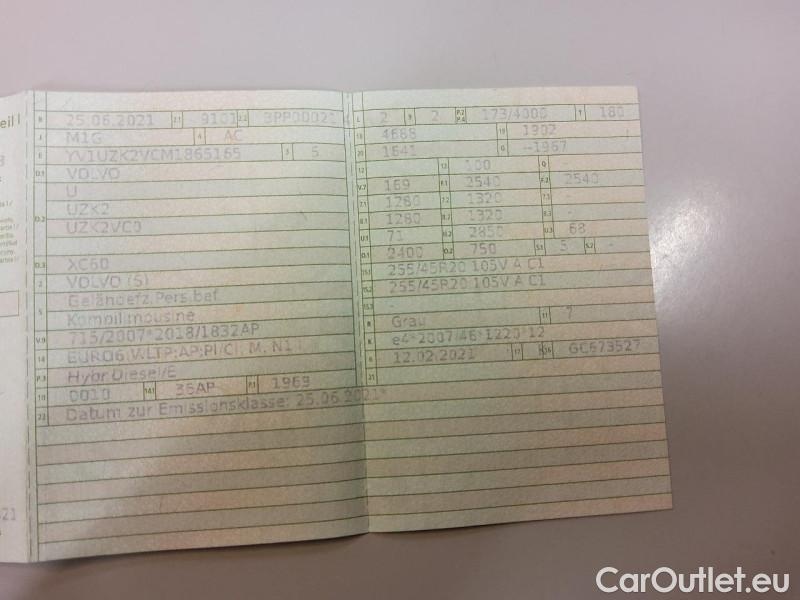 B 25.06.2021 2.1 9101 2.2 BPP00021
J M1G 4 AC
E YV1UZK2VCM1865165 3 5
D.1 VOLVO
U
D.2 UZK2
UZK2VC0
D.3 XC60
2 VOLVO (S)
5 Geländefz.Pers.bef.
Kombilimousine
V.9 715/2007*2018/1832AP
14 EURO6;WLTP;AP;PI/CI; M, N1 I
P.3 Hybr.Diesel/E
10 0010 14.1 36AP P.1 1969
22 Datum zur Emissionsklasse: 25.06.2021*
L 2 9 2 P.2 P.4 173/4000 T 180
18 4688 19 1902
20 1641 G --1967
12 - 13 100 Q -
V.7 169 F.1 2540 F.2 2540
7.1 1280 7.2 1320 7.3 -
8.1 1280 8.2 1320 8.3 -
U.1 71 U.2 2850 U.3 68
O.1 2400 O.2 750 S.1 5 S.2 -
15.1 255/45R20 105V A C1
15.2 255/45R20 105V A C1
15.3 -
R Grau 11 7
K e4*2007/46*1220*12
6 12.02.2021 17 K 16 GC673527
21
CarOutlet.eu